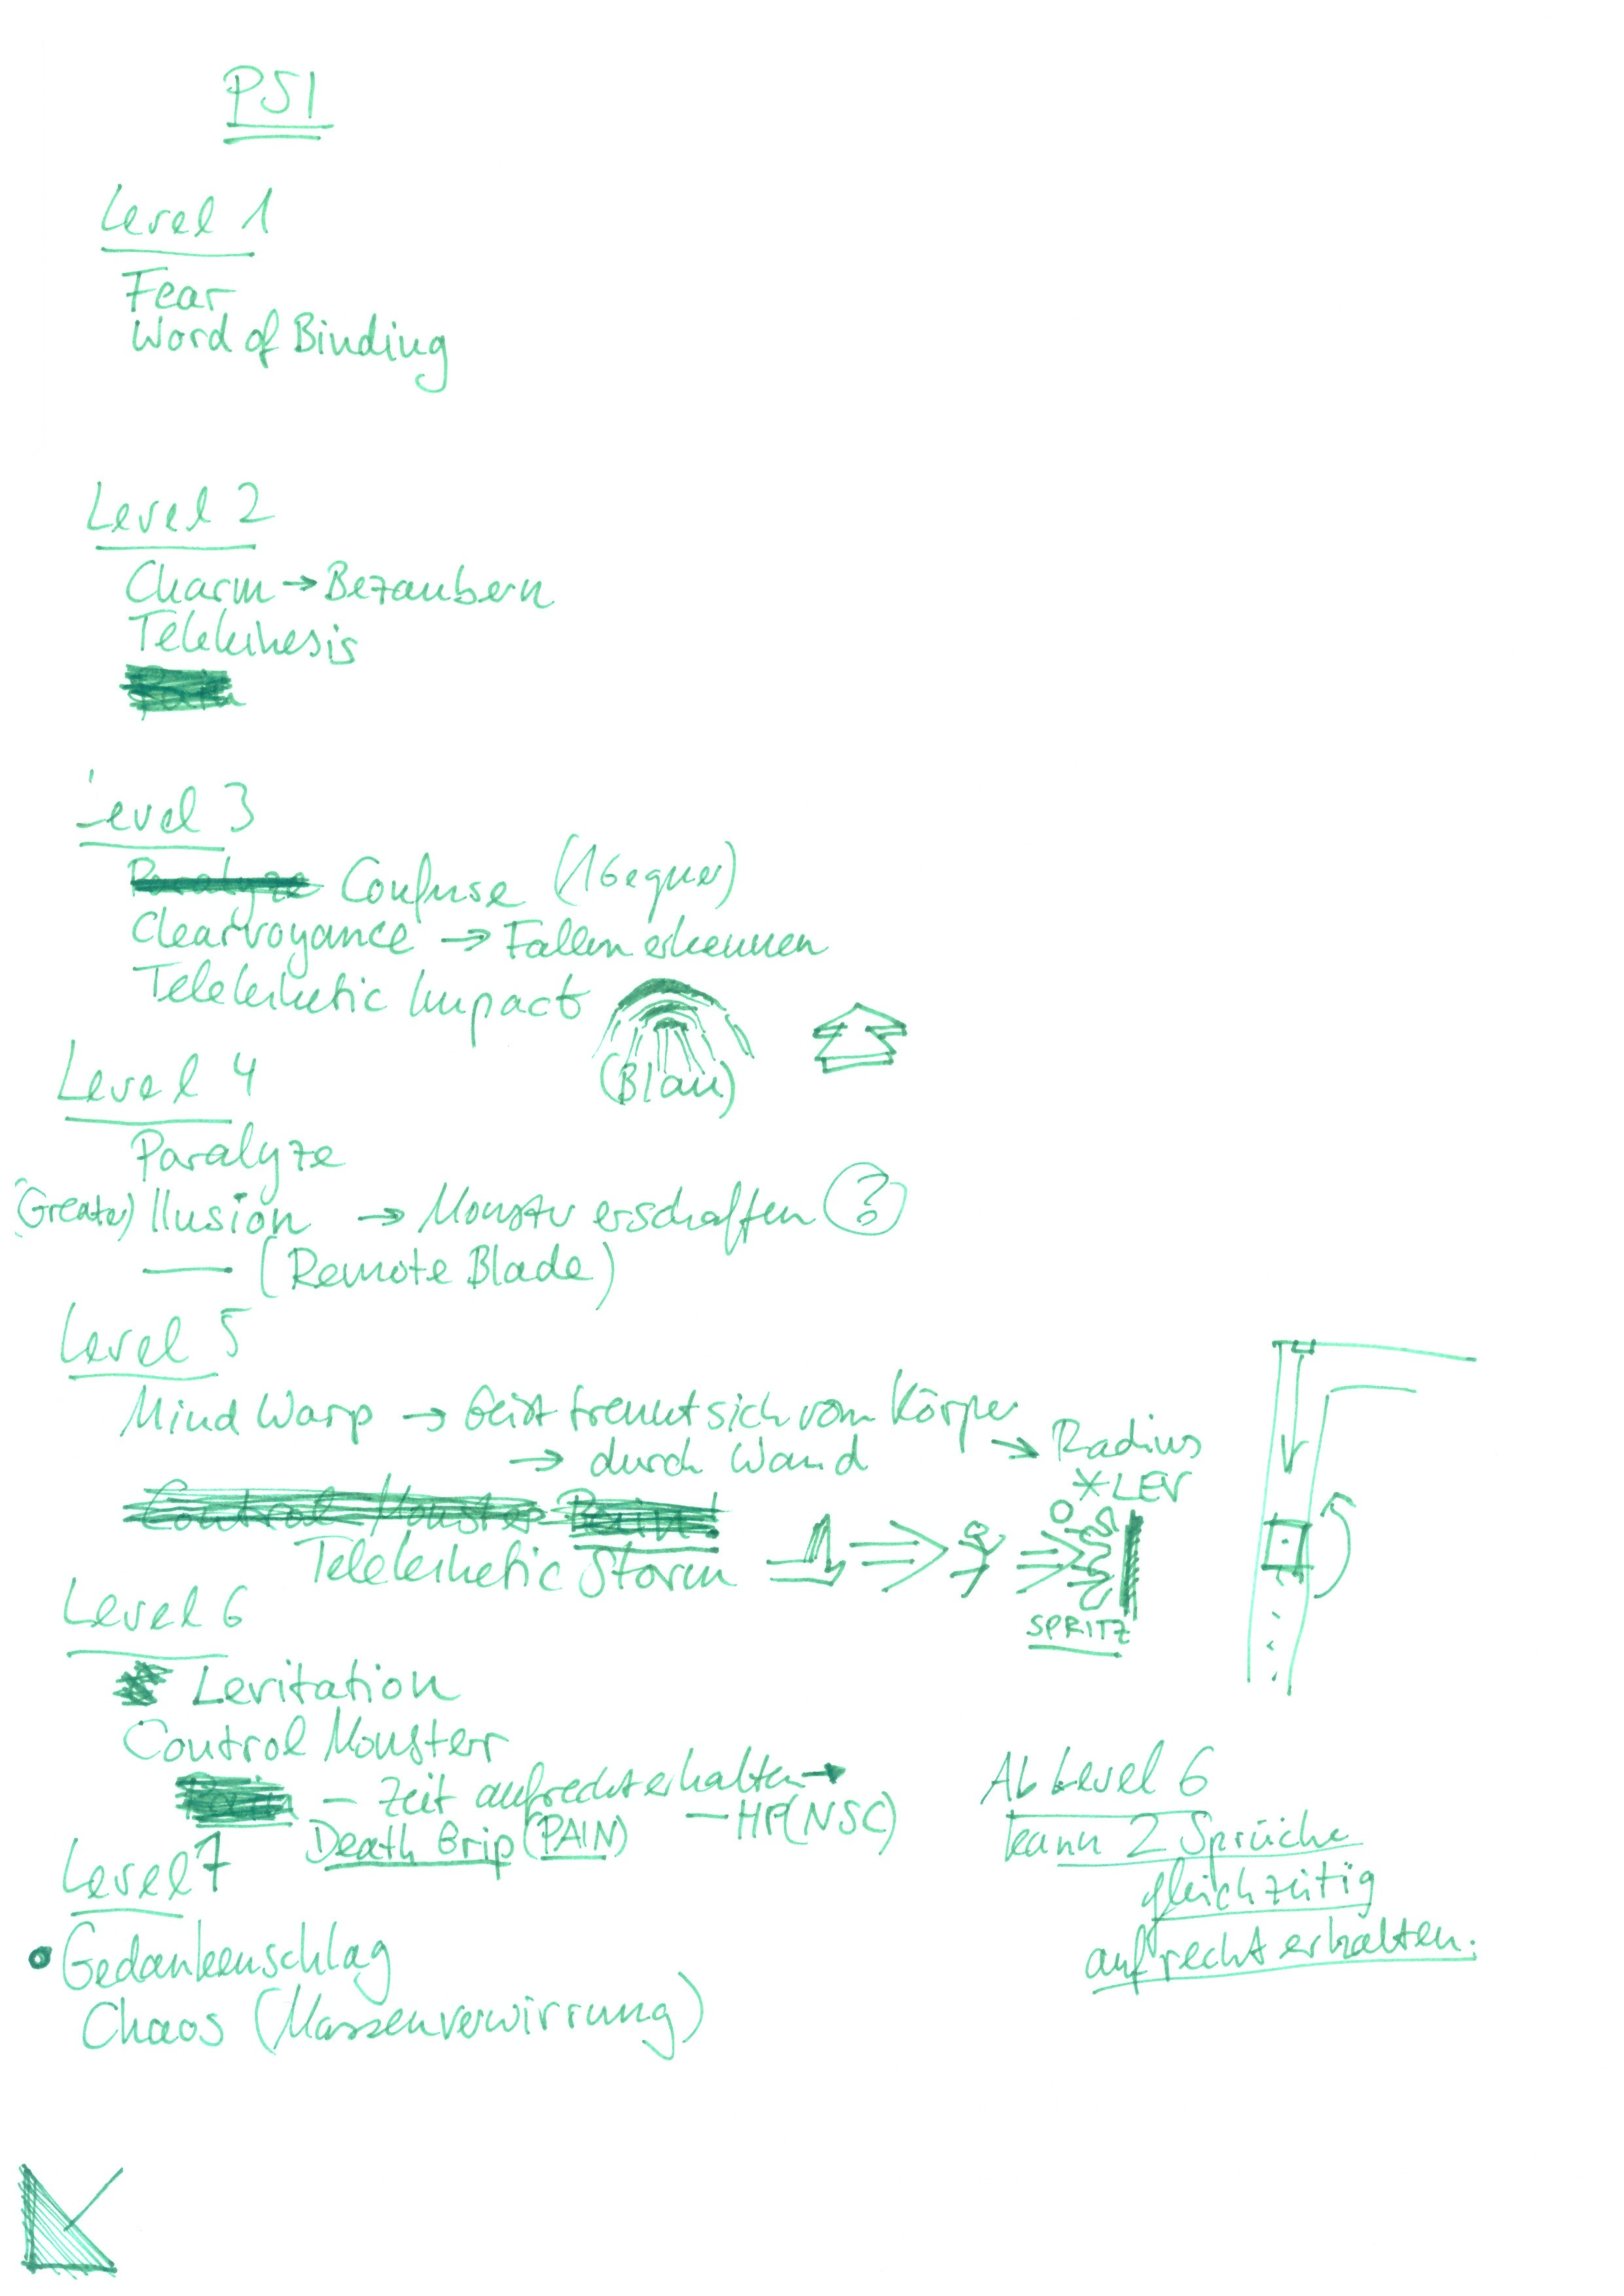 PSI
Level 1
Fear
Word of Binding
Level 2
Charm → Bezaubern
Telekinesis
Level 3
Paralyze Confuse (1 Gegner)
Clearvoyance → Fallen erkennen
Telekinetic Impact
(Blau)
Level 4
Paralyze
(Greater) Ilusion → Monster erschaffen ?
— (Remote Blade)
Level 5
Mind Warp → Geist trennt sich vom Körper
→ durch Wand → Radius
* LEV
Control Monster
Telekinetic Storm
SPRITZ
Level 6
Levitation
Control Monster
– Zeit aufrechterhalten →
Death Grip (PAIN) – HP(NSC)
Ab Level 6
kann 2 Sprüche
gleichzeitig
aufrecht erhalten.
Level 7
• Gedankenschlag
Chaos (Massenverwirrung)